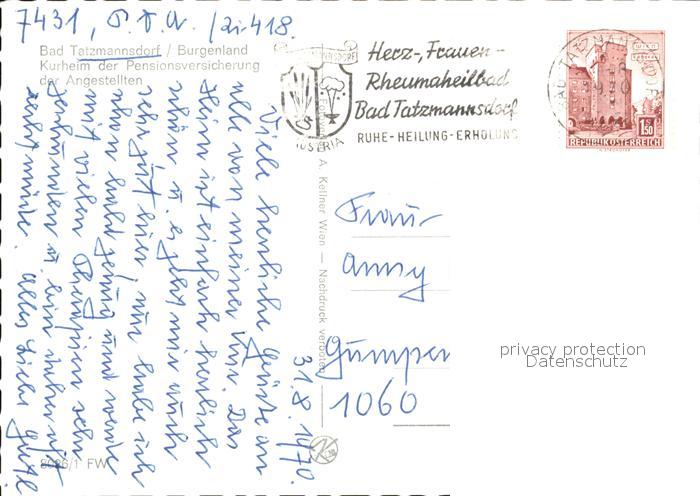 7431, P.V.A. /Zi 418.
Bad Tatzmannsdorf / Burgenland
Kurheim der Pensionsversicherung
der Angestellten
BAD TATZMANNSDORF
AUSTRIA
Herz-, Frauen-
Rheumaheilbad
Bad Tatzmannsdorf
RUHE-HEILUNG-ERHOLUNG
WIEN
1.50
REPUBLIK ÖSTERREICH
31.8.1970.
Viele herzliche Grüße an
alle von meiner Kur. Das
Heim ist einfach herrlich
schön u. es geht mir auch
sehr gut hier, nur habe ich
schon bald genug und werde
mit vielen Therapien sehr
u. bin daher oft
recht müde. Alles Liebe
A. Kellner Wien — Nachdruck verboten
Frau
Anny
Gumpen
1060
privacy protection
Datenschutz
8086/1 FW